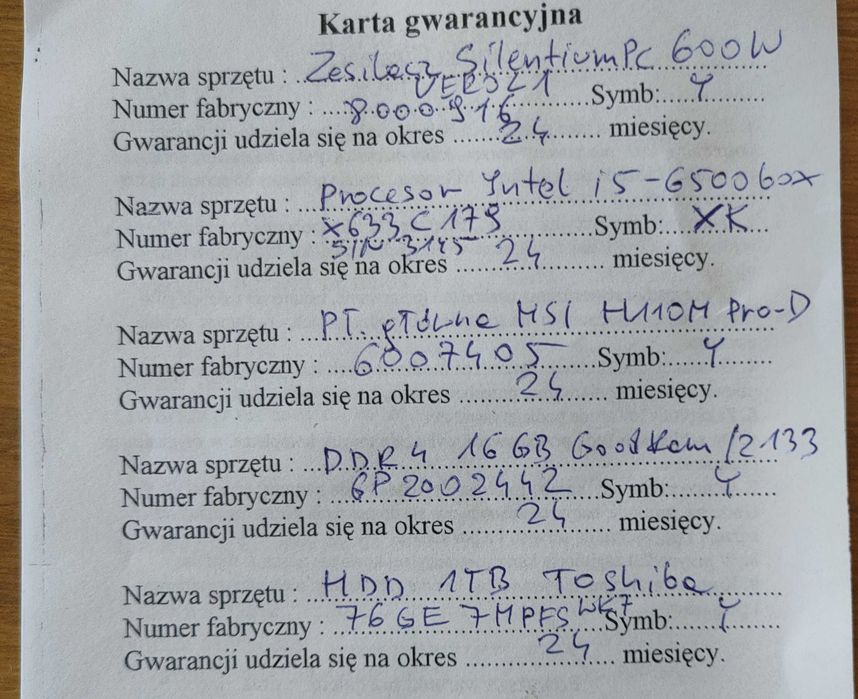 Karta gwarancyjna
Nazwa sprzętu : Zasilacz SilentiumPc 600W
VERO L1
Numer fabryczny : 8000916 Symb: Y
Gwarancji udziela się na okres 24 miesięcy.
Nazwa sprzętu : Procesor Intel i5-6500 box
Numer fabryczny : X633C179 Symb: XK
S/N 3145
Gwarancji udziela się na okres 24 miesięcy.
Nazwa sprzętu : Pł. główna MSI H110M Pro-D
Numer fabryczny : 6007405 Symb: Y
Gwarancji udziela się na okres 24 miesięcy.
Nazwa sprzętu : DDR4 16GB GoodRam /2133
Numer fabryczny : GP2002442 Symb: Y
Gwarancji udziela się na okres 24 miesięcy.
Nazwa sprzętu : HDD 1TB Toshiba
Numer fabryczny : 76GE7MPFS WK7 Symb: Y
Gwarancji udziela się na okres 24 miesięcy.